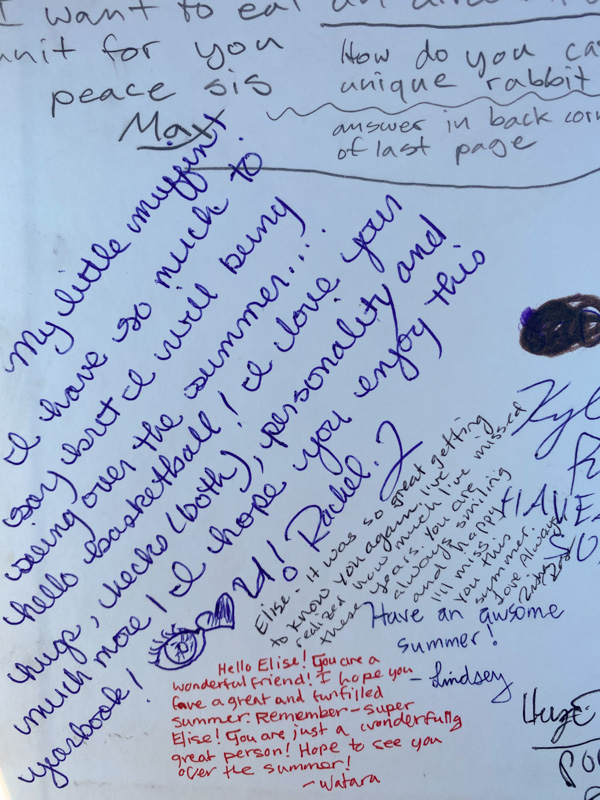 I want to eat an
unit for you
peace sis
Max
How do you ca
unique rabbit
answer in back corn
of last page
My little muffin!
I have so much to
say but I will being
over the summer....
hello basketball! I love your
hugs, necks (both), personality and
much more! I hope you enjoy this
yearbook! U! Rachel. J
Elise - It was so great getting
to know you again. I've
realized how much I've missed
these years. You are
always smiling
and happy
I'll miss
you this
summer.
Love Always
Have an awsome
summer!
- Lindsey
Hello Elise! You are a
wonderful friend! I hope you
fave a great and funfilled
summer. Remember - super
Elise! You are just a wonderfully
great person! Hope to see you
over the summer!
- Watara
Kyl
HAVE
Huge